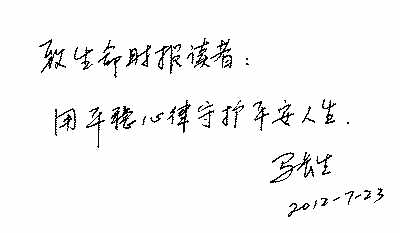 致生命时报读者：
用平稳心律守护平安人生.
马长生
2012-7-23